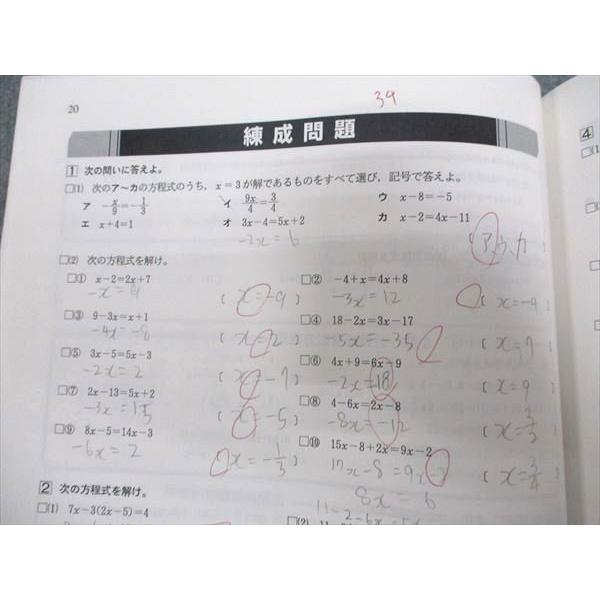 20
34
練成問題
1 次の問いに答えよ。
□(1) 次のア〜カの方程式のうち，x＝3が解であるものをすべて選び，記号で答えよ。
ア －x/9＝－1/3 イ 9x/4＝3/4 ウ x－8＝－5
エ x＋4＝1 オ 3x－4＝5x＋2 カ x－2＝4x－11
-2x = 6
ア,ウ,カ
□(2) 次の方程式を解け。
□① x－2＝2x＋7 □② －4＋x＝4x＋8
-x = 9 〔 x=-9 〕 -3x = 12 〔 x=-4
□③ 9－3x＝x＋1 □④ 18－2x＝3x－17
-4x = -8 〔 x=2 〕 -5x = -35 〔 x=7
□⑤ 3x－5＝5x－3 □⑥ 4x＋9＝6x－9
-2x = 2 -2x=-18 〔 x=9
□⑦ 2x－13＝5x＋2 □⑧ 4－6x＝2x－8
-3x = 15 〔 x=-5 〕 -8x = -12
□⑨ 8x－5＝14x－3 □⑩ 15x－8＋2x＝9x－2
-6x = 2 x=-1/3 〕 17x-8=9x-2 〔 x=3/4
8x = 6
2 次の方程式を解け。
□(1) 7x－3(2x－5)＝4
□(2)
4
□(1